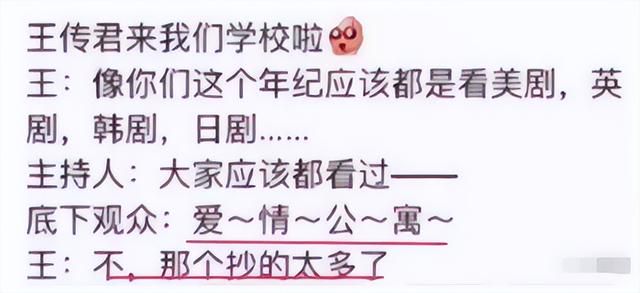 王传君来我们学校啦
王：像你们这个年纪应该都是看美剧，英
剧，韩剧，日剧......
主持人：大家应该都看过——
底下观众：爱～情～公～寓～
王：不，那个抄的太多了